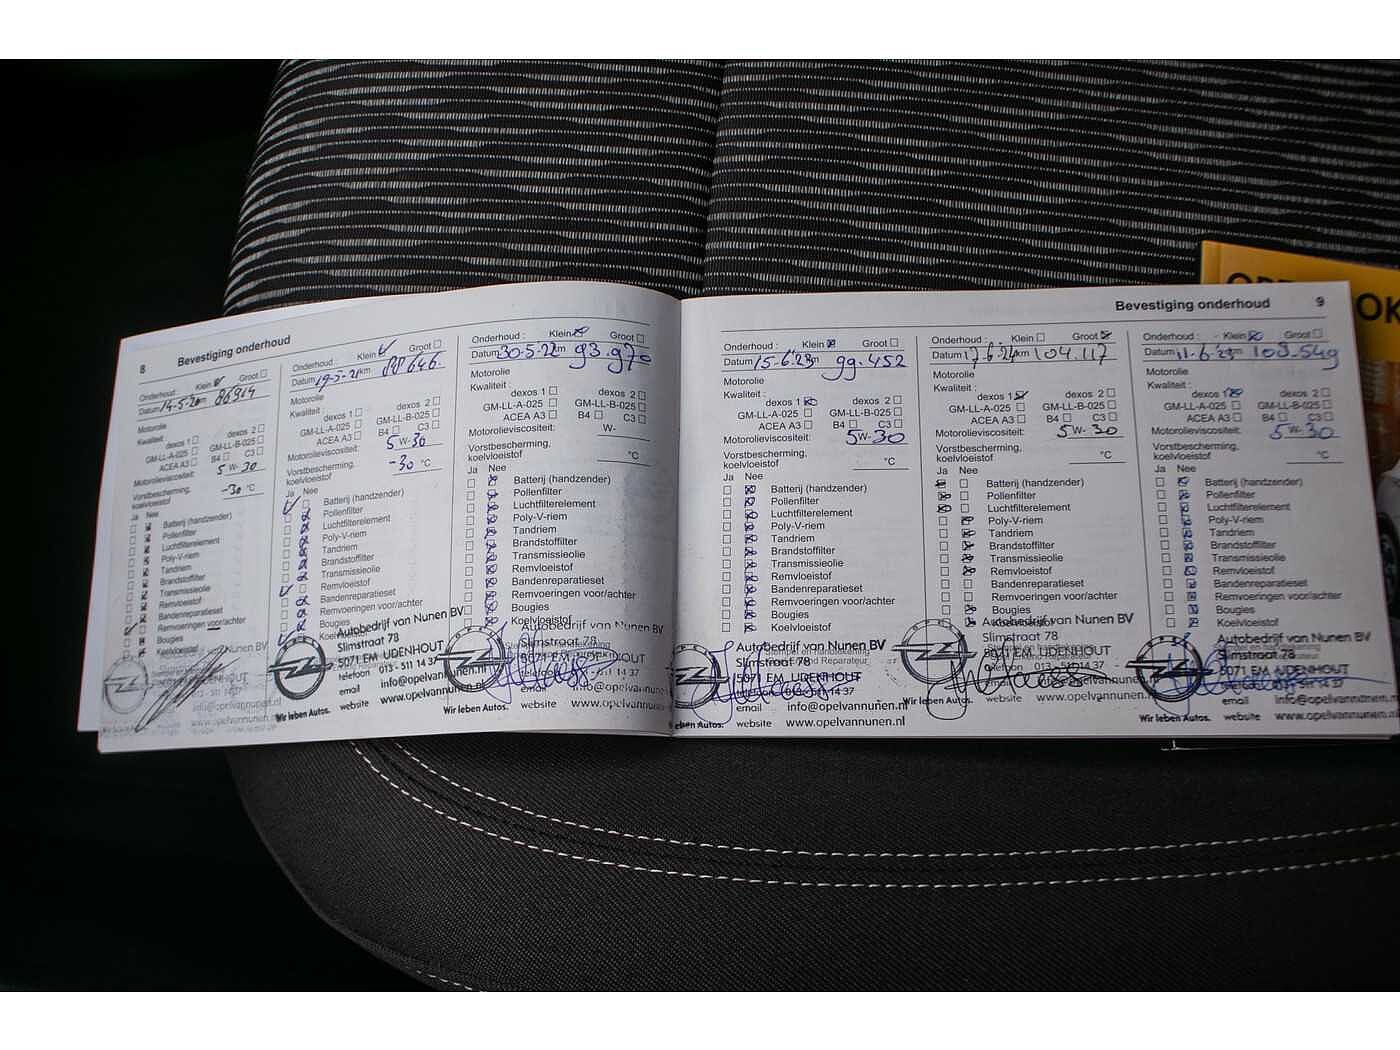 8 Bevestiging onderhoud
Onderhoud : Klein Groot
Datum 14-5-20 km 86914
Motorolie
Kwaliteit :
dexos 1 dexos 2
GM-LL-A-025 GM-LL-B-025
ACEA A3 B4 C3
Motorolieviscositeit: 5 W- 30
Vorstbescherming,
koelvloeistof -30 °C
Ja Nee
Batterij (handzender)
Pollenfilter
Luchtfilterelement
Poly-V-riem
Tandriem
Brandstoffilter
Transmissieolie
Remvloeistof
Bandenreparatieset
Remvoeringen voor/achter
Bougies
Koelvloeistof
info@opelvannunen
Onderhoud : Klein Groot
Datum 19-5-21 km 88646.
Motorolie
Kwaliteit :
dexos 1 dexos 2
GM-LL-A-025 GM-LL-B-025
ACEA A3 B4 C3
Motorolieviscositeit: 5 W- 30
Vorstbescherming,
koelvloeistof -30 °C
Ja Nee
Batterij (handzender)
Pollenfilter
Luchtfilterelement
Poly-V-riem
Tandriem
Brandstoffilter
Transmissieolie
Remvloeistof
Bandenreparatieset
Remvoeringen voor/achter
Bougies
Autobedrijf van Nunen BV
Slimstraat 78
5071 EM UDENHOUT
telefoon 013 - 511 14 37
email info@opelvannunen.nl
Wir leben Autos. website www.opelvannunen.nl
Onderhoud : Klein Groot
Datum 30-5-22 km 93.970
Motorolie
Kwaliteit :
dexos 1 dexos 2
GM-LL-A-025 GM-LL-B-025
ACEA A3 B4 C3
Motorolieviscositeit: W-
Vorstbescherming,
koelvloeistof °C
Ja Nee
Batterij (handzender)
Pollenfilter
Luchtfilterelement
Poly-V-riem
Tandriem
Brandstoffilter
Transmissieolie
Remvloeistof
Bandenreparatieset
Remvoeringen voor/achter
Bougies
Koelvloeistof
Autobedrijf van Nunen BV
Slimstraat 78
5071 EM UDENHOUT
email info@opelvannunen
Wir leben Autos. website www.opelvannunen.n
Bevestiging onderhoud 9
Onderhoud : Klein Groot
Datum 15-6-23 km 99.452
Motorolie
Kwaliteit :
dexos 1 dexos 2
GM-LL-A-025 GM-LL-B-025
ACEA A3 B4 C3
Motorolieviscositeit: 5 W- 30
Vorstbescherming,
koelvloeistof °C
Ja Nee
Batterij (handzender)
Pollenfilter
Luchtfilterelement
Poly-V-riem
Tandriem
Brandstoffilter
Transmissieolie
Remvloeistof
Bandenreparatieset
Remvoeringen voor/achter
Bougies
Koelvloeistof
Autobedrijf van Nunen BV
Slimstraat 78
5071 EM UDENHOUT
telefoon 013-511 14 37
email info@opelvannunen.nl
eben Autos. website www.opelvannunen.nl
Onderhoud : Klein Groot
Datum 17-6-24 km 104.117
Motorolie
Kwaliteit :
dexos 1 dexos 2
GM-LL-A-025 GM-LL-B-025
ACEA A3 B4 C3
Motorolieviscositeit: 5 W- 30
Vorstbescherming,
koelvloeistof °C
Ja Nee
Batterij (handzender)
Pollenfilter
Luchtfilterelement
Poly-V-riem
Tandriem
Brandstoffilter
Transmissieolie
Remvloeistof
Bandenreparatieset
Remvoeringen voor/achter
Bougies
Koelvloeistof
Autobedrijf van Nunen BV
Slimstraat 78
5071 EM UDENHOUT
telefoon 013-511 14 37
email info@opelvannunen
Wir leben Autos. website www.opelvannunen.nl
Onderhoud : Klein Groot
Datum km 108.549
Motorolie
Kwaliteit :
dexos 1 dexos 2
GM-LL-A-025 GM-LL-B-025
ACEA A3 B4 C3
Motorolieviscositeit: 5 W- 30
Vorstbescherming,
koelvloeistof °C
Ja Nee
Batterij (handzender)
Pollenfilter
Luchtfilterelement
Poly-V-riem
Tandriem
Brandstoffilter
Transmissieolie
Remvloeistof
Bandenreparatieset
Remvoeringen voor/achter
Bougies
Koelvloeistof
Autobedrijf van Nunen BV
Slimstraat 78
5071 EM UDENHOUT
email info@opelvannunen
Wir leben Autos. website www.opelvannunen.nl